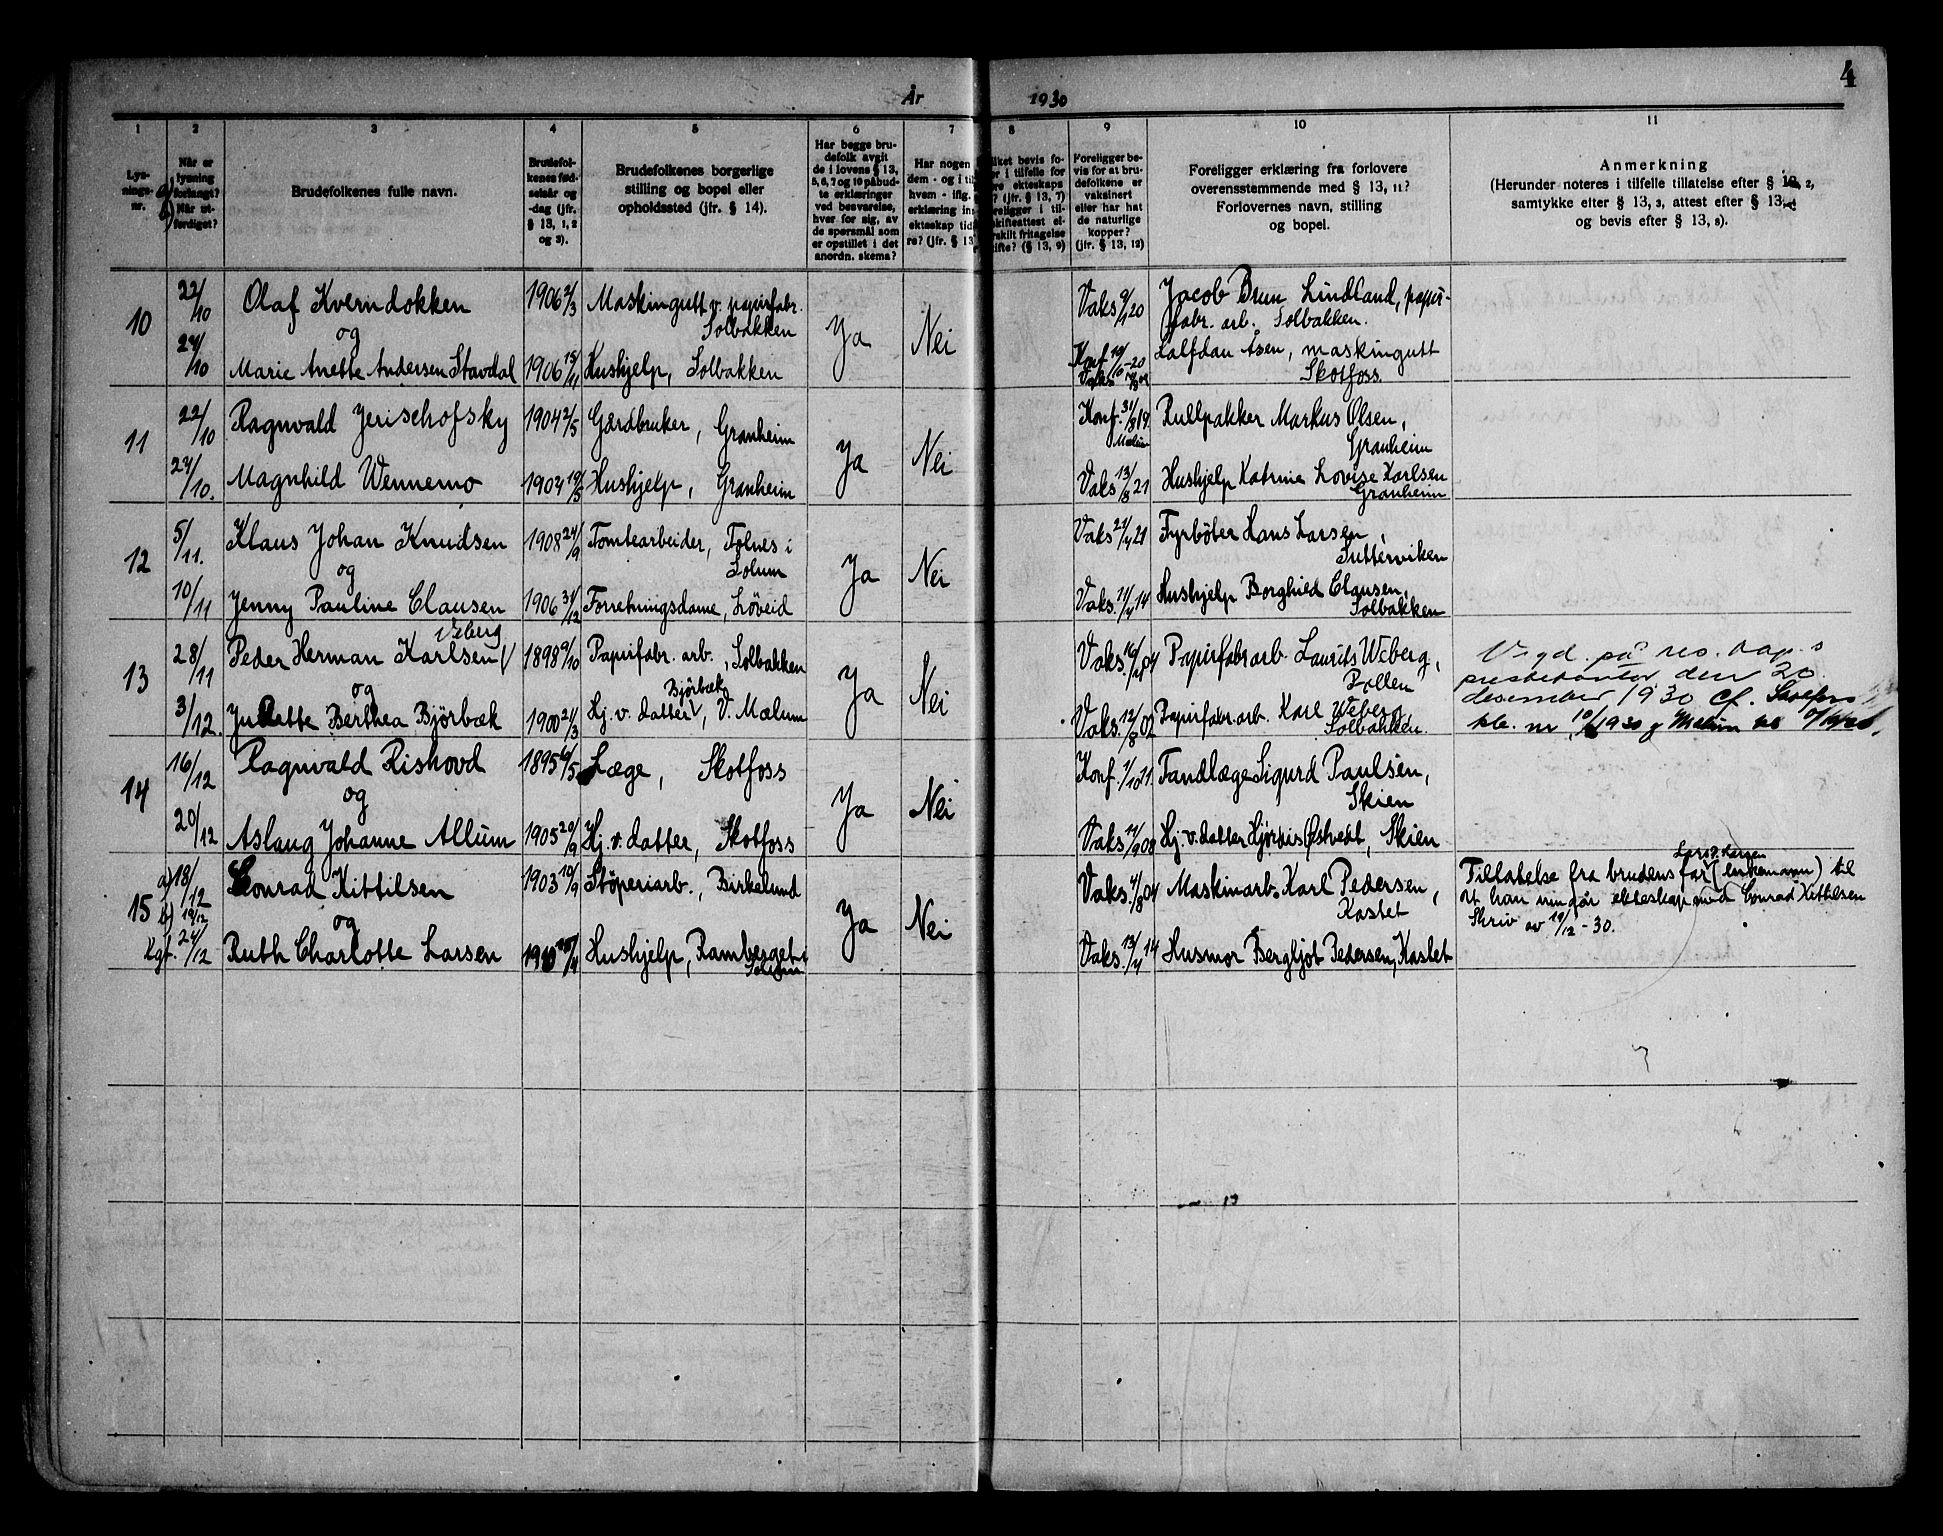 4
År 1930
1 2 3 4 5 6 7 8 9 10 11
Lys-
nings-
nr.
Når er
lysning
forlangt?
Når ut-
ferdiget?
a)
b)
Brudefolkenes fulle navn.
Brudefol-
kenes fød-
selsår og
-dag (jfr.
§ 13, 1, 2
og 3).
Brudefolkenes borgerlige
stilling og bopel eller
opholdssted (jfr. § 14).
Har begge bru-
defolk avgit
de i lovens § 13,
5, 6, 7 og 10 påbud-
te erklæringer
ved besvarelse,
hver for sig, av
de spørsmål som
er opstillet i det
anordn. skema?
Har nogen
dem - og i til
hvem - iflg.
erklæring in
ekteskap tid
re? (jfr. § 13
ilket bevis fo-
r i tilfelle for
re ekteskaps
? (jfr. § 13, 7)
religger i til-
skifteattest el-
rskilt fritagelse
ifte? (§ 13, 9)
Foreligger be-
vis for at bru-
defolkene er
vaksinert
eller har hat
de naturlige
kopper?
(jfr. § 13, 12)
Foreligger erklæring fra forlovere
overensstemmende med § 13, 11?
Forlovernes navn, stilling
og bopel.
Anmerkning
(Herunder noteres i tilfelle tillatelse efter § 2,
samtykke efter § 13, 3, attest efter § 13, 4
og bevis efter § 13, 8).
10
22/10
Olaf Kverndokken
1906 2/3
Maskingutt v. papirfabr.
Solbakken
Ja Nei
Vaks 9/1 20
Jacob Brun Lindland, papir-
fabr. arb. Solbakken.
og
24/10
Marie Anette Andersen Stavdal
1906 15/11
Hushjelp, Solbakken
Konf. -20
Vaks
Halfdan Åsen, maskingutt
Skotfoss.
11
22/10
Ragnvald Jerischofsky
1904 2/5
Gårdbruker, Granheim
Ja Nei
Konf. 31/8 19.
Mælum
Rullpakker Markus Olsen,
Granheim
24/10.
Magnhild Wennemo
1904 19/5
Hushjelp, Granheim
Vaks 13/8 21
Hushjelp Katrine Lovise Karlsen
Granheim
12
5/11.
Klaus Johan Knudsen
1908 24/9
Tomtearbeider, Folnes i
Solum
Ja Nei
Vaks 21/4 21
Fyrbøter Hans Larsen,
Sutterviken
og
10/11
Jenny Pauline Clausen
1906 31/12
Forretningsdame, Løveid
Vaks. 11/4 14
Hushjelp Borghild Clausen,
Solbakken
13
28/11
Viberg
Peder Herman Karlsen
1898 9/10
Papirfabr. arb., Solbakken
Ja Nei
Papirfabr.arb. Laurits Wiberg,
Pollen
Vigd på res. kap.s
prestekontor den 20
desember 1930 cf.
og
3/12.
Berthea Bjørbæk
1900 21/3
Bjørbæk
Hj. v. datter, V. Mælum
Vaks. 12/8 02
Papirfabr.arb. Karl Wiberg
Solbakken.
kb. nr 10/1930
14
16/12
Ragnvald Rishovd
1895 6/5
Læge, Skotfoss
Ja Nei
Konf. 1/10 11.
Tandlæge Sigurd Paulsen,
Skien
og
20/12
Aslaug Johanne Allum
1905 20/9
Hj. v. datter, Skotfoss
Vaks 14/9 09
Hj. v. datter Hjørdis Østvedt, Skien
15
a) 18/12
Conrad Kittilsen
1903 10/9
Støperiarb., Birkelund
Ja Nei
Vaks. 4/8 04
Maskinarb. Karl Pedersen,
Kastet
Lars P. Larsen
Tillatelse fra brudens far () til
at han inngår ekteskap med Conrad Kittilsen
Skriv av 19/12 - 30.
b) 19/12
og
Kgf. 24/12
Ruth Charlotte Larsen
1910
Hushjelp, Ramberget i
Solum
Vaks. 13/4 14
Husmor Bergljot Pedersen, Kastet